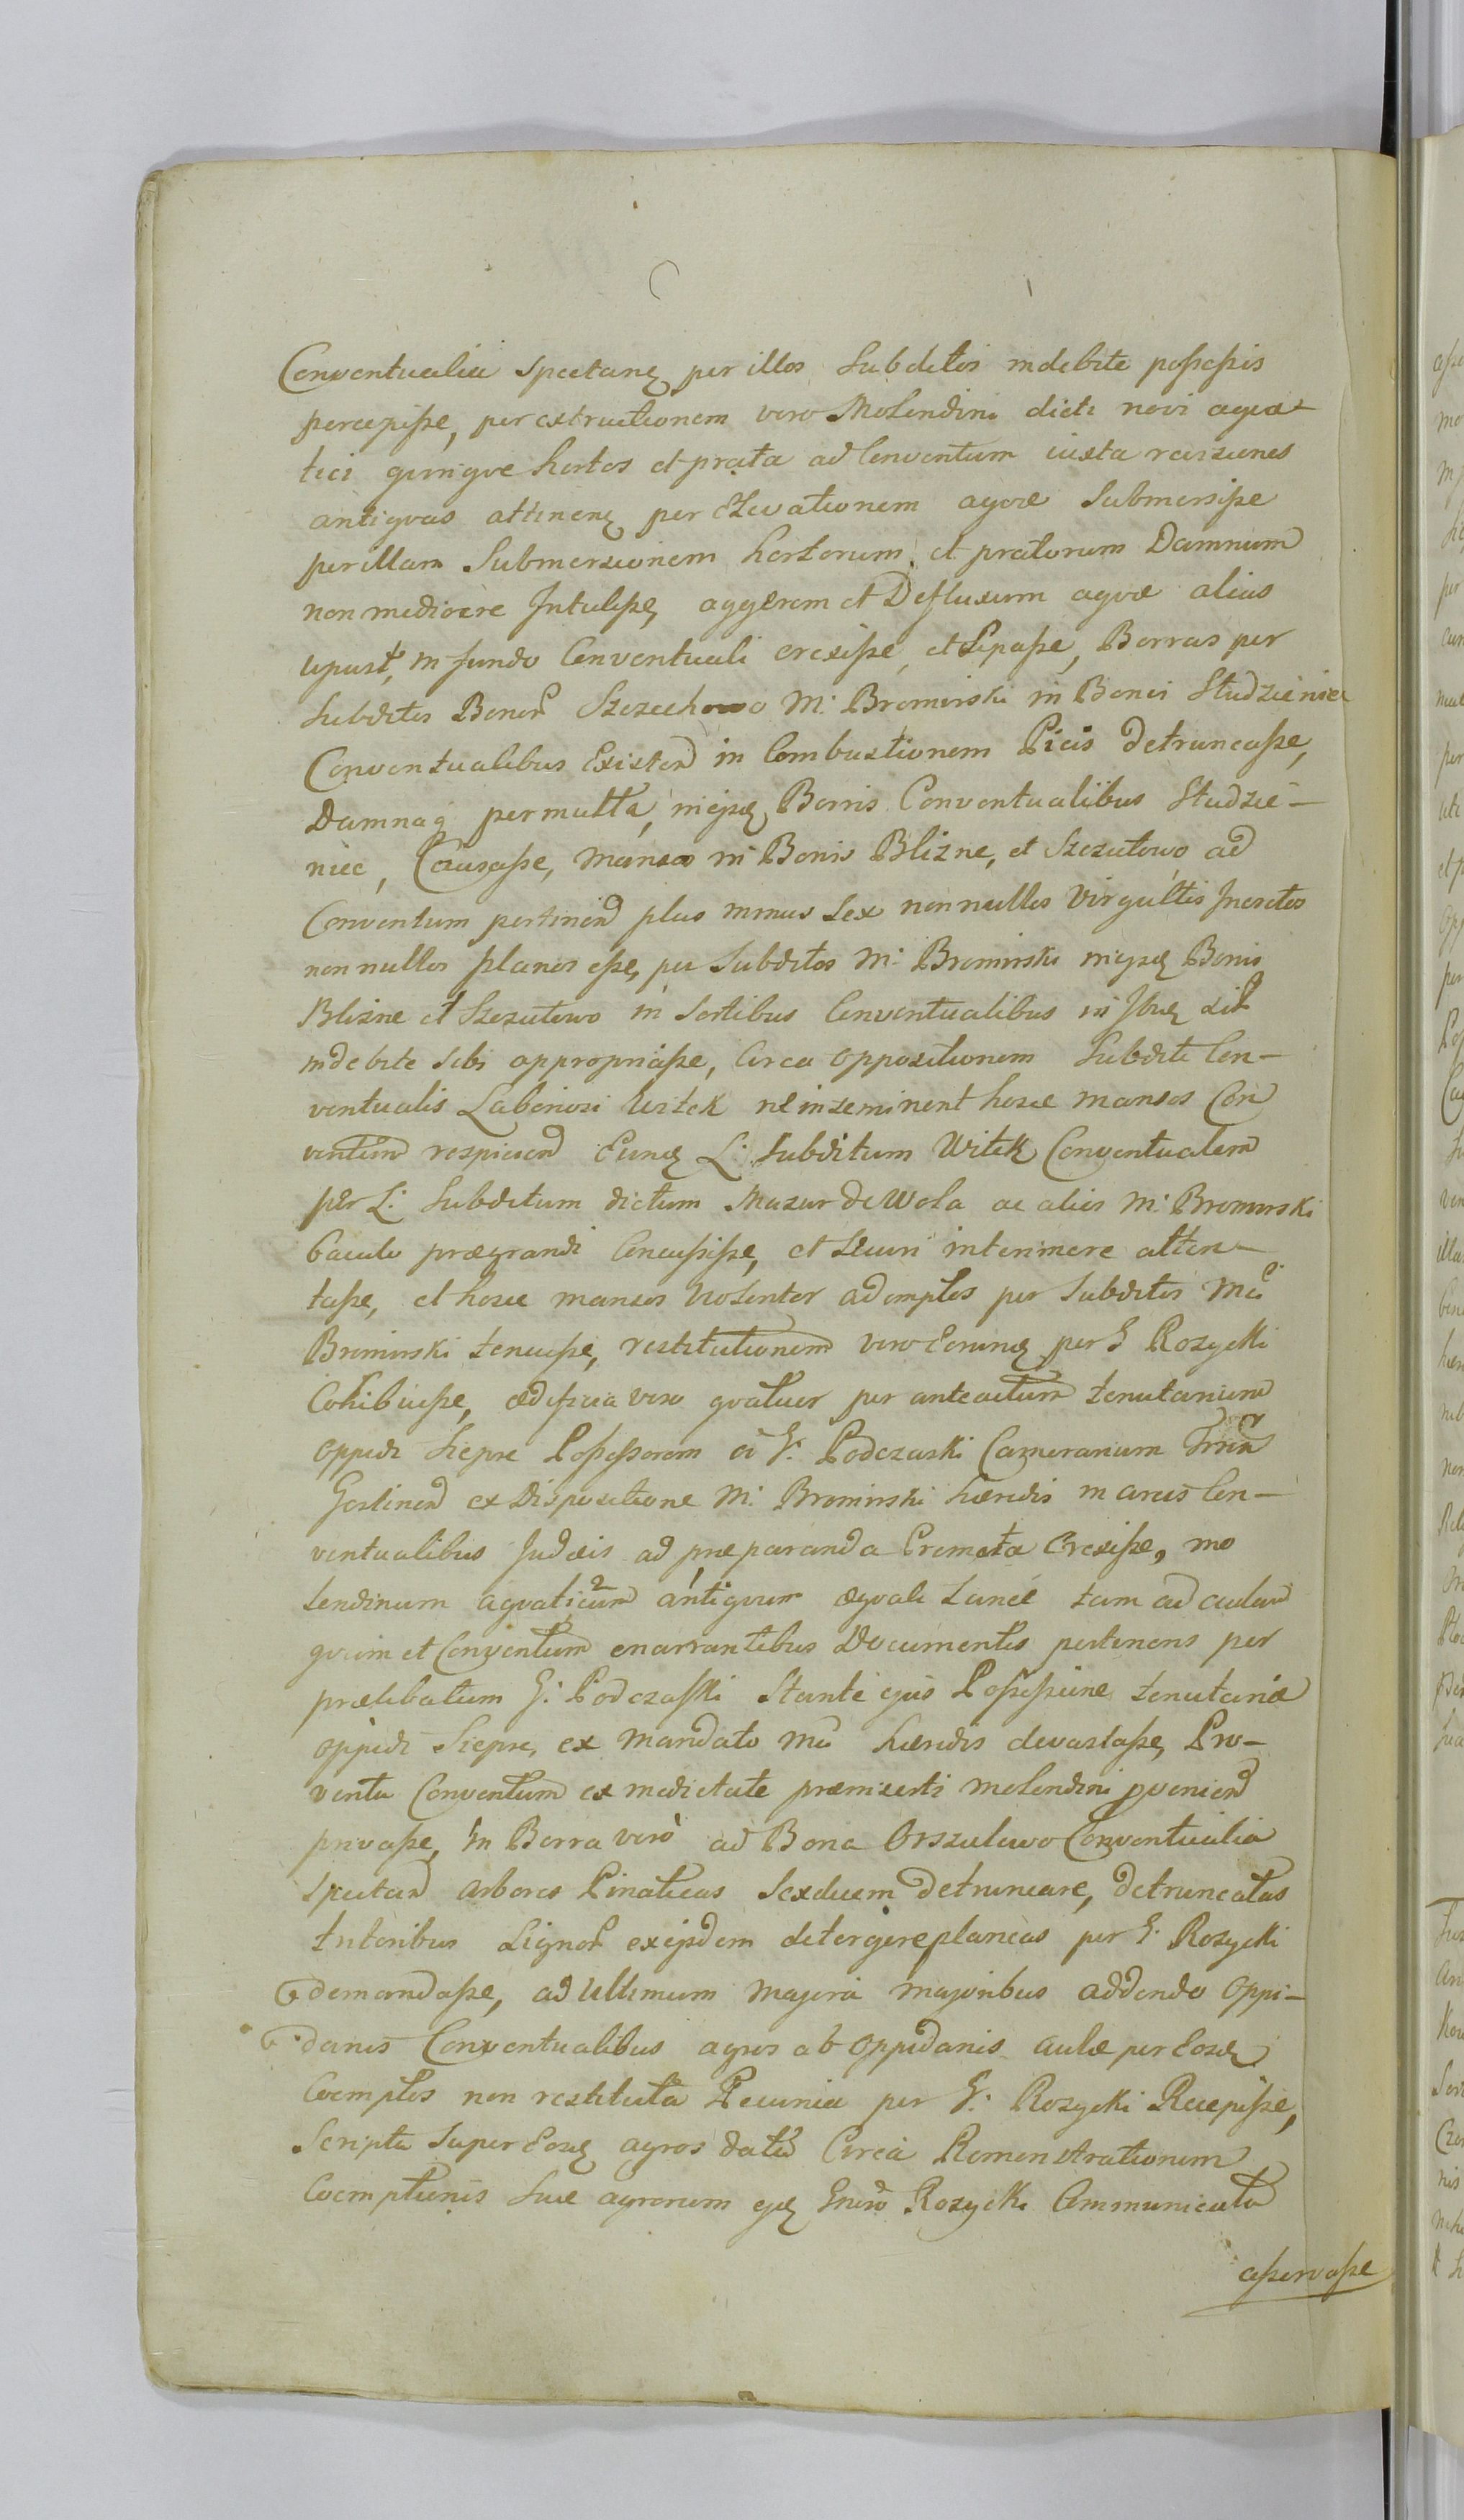 Conventualia spectanq per illos Subditos indebite possessis
percepisse, per extructionem vero Molendini dicti novi aqua-
tici quinque hortos et prata ad Conventum iuxta reviziones
antiquas attinenq per Elevationem aqvæ Submersisse
per illam Submersionem hortorum et pratorum Damnum
non mediocre Intulisse, aggerem et Defluxum aqvæ alias
upust, in fundo Conventuali erexisse, et Sepasse, Borras per
Subditos Bonor Szczechowo M: Bromirski in Bonis Studzieniec
Conventualibus Existen in Combustionem Picis detruncasse,
Damnaq permulta, in ejsq Borris Conventualibus Studzie-
niec, Causasse, Mansos in Bonis Blizne, et Szczutowo ad
Conventum pertinen plus minus Sex nonnullos Virgultis Incretos
nonnullos planos esse, per Subditos M: Bromirski in ejsq Bonis
Blizne et Szczutowo in Sortibus Conventualibus
indebite Sibi appropriasse, Circa oppositionem Subditi Con-
ventualis Laboriosi Witek ne inseminent hosce mansos Con
ventum respicien Eunq L: Subditum Witek Conventualem
per L: Subditum dictum Mazur de Wola ac alios M: Bromirski
baculo prægrandi Concussisse, et Securi interimere atten-
tasse, et hosce mansos Violenter ademptos per Subditos Mci
Bromirski tenuisse, restitutionem vero Eorunq per G Rozycki
Cohibuisse, ædificia vero qvatuor per anteactum tenutarium
oppidi Siepre Possessorem G: Podczaski Camerarium Trrn
Gostinen ex Dispositione M: Bromirski hæredis in areis Con-
ventualibus Judæis ad præparanda Cremata Erexisse, mo
lendinum aqvaticum antiqvum æqvali Lance tam ad aulam
qvam et Conventum enarrantibus Documentis pertinens per
prælibatum G: Podczaski Stante ejus Possessione tenutariæ
oppidi Siepre, ex Mandato Mci hæredis devastasse, Pro-
ventu Conventum ex medietate præmissi molendini pvenien
privasse, in Borra vero ad Bona Orszulewo Conventualia
spectan arbores Pinaticas Sexdecem detruncare, detruncatas
tritoribus Lignor ex ejsdem detergere plancas per G: Rozycki
demandasse, ad Ultimum Majora majoribus addendo oppi-
danis Conventualibus agros ab oppidanis aulæ per Eosq
Coemptos non restituta Pecunia per G: Rozycki Recepisse,
Scripta Super Eosq agros data Circa Remonstrationem
Coemptionis Suæ agrorum ejq Gneroso Rozycki Communicata
asservasse